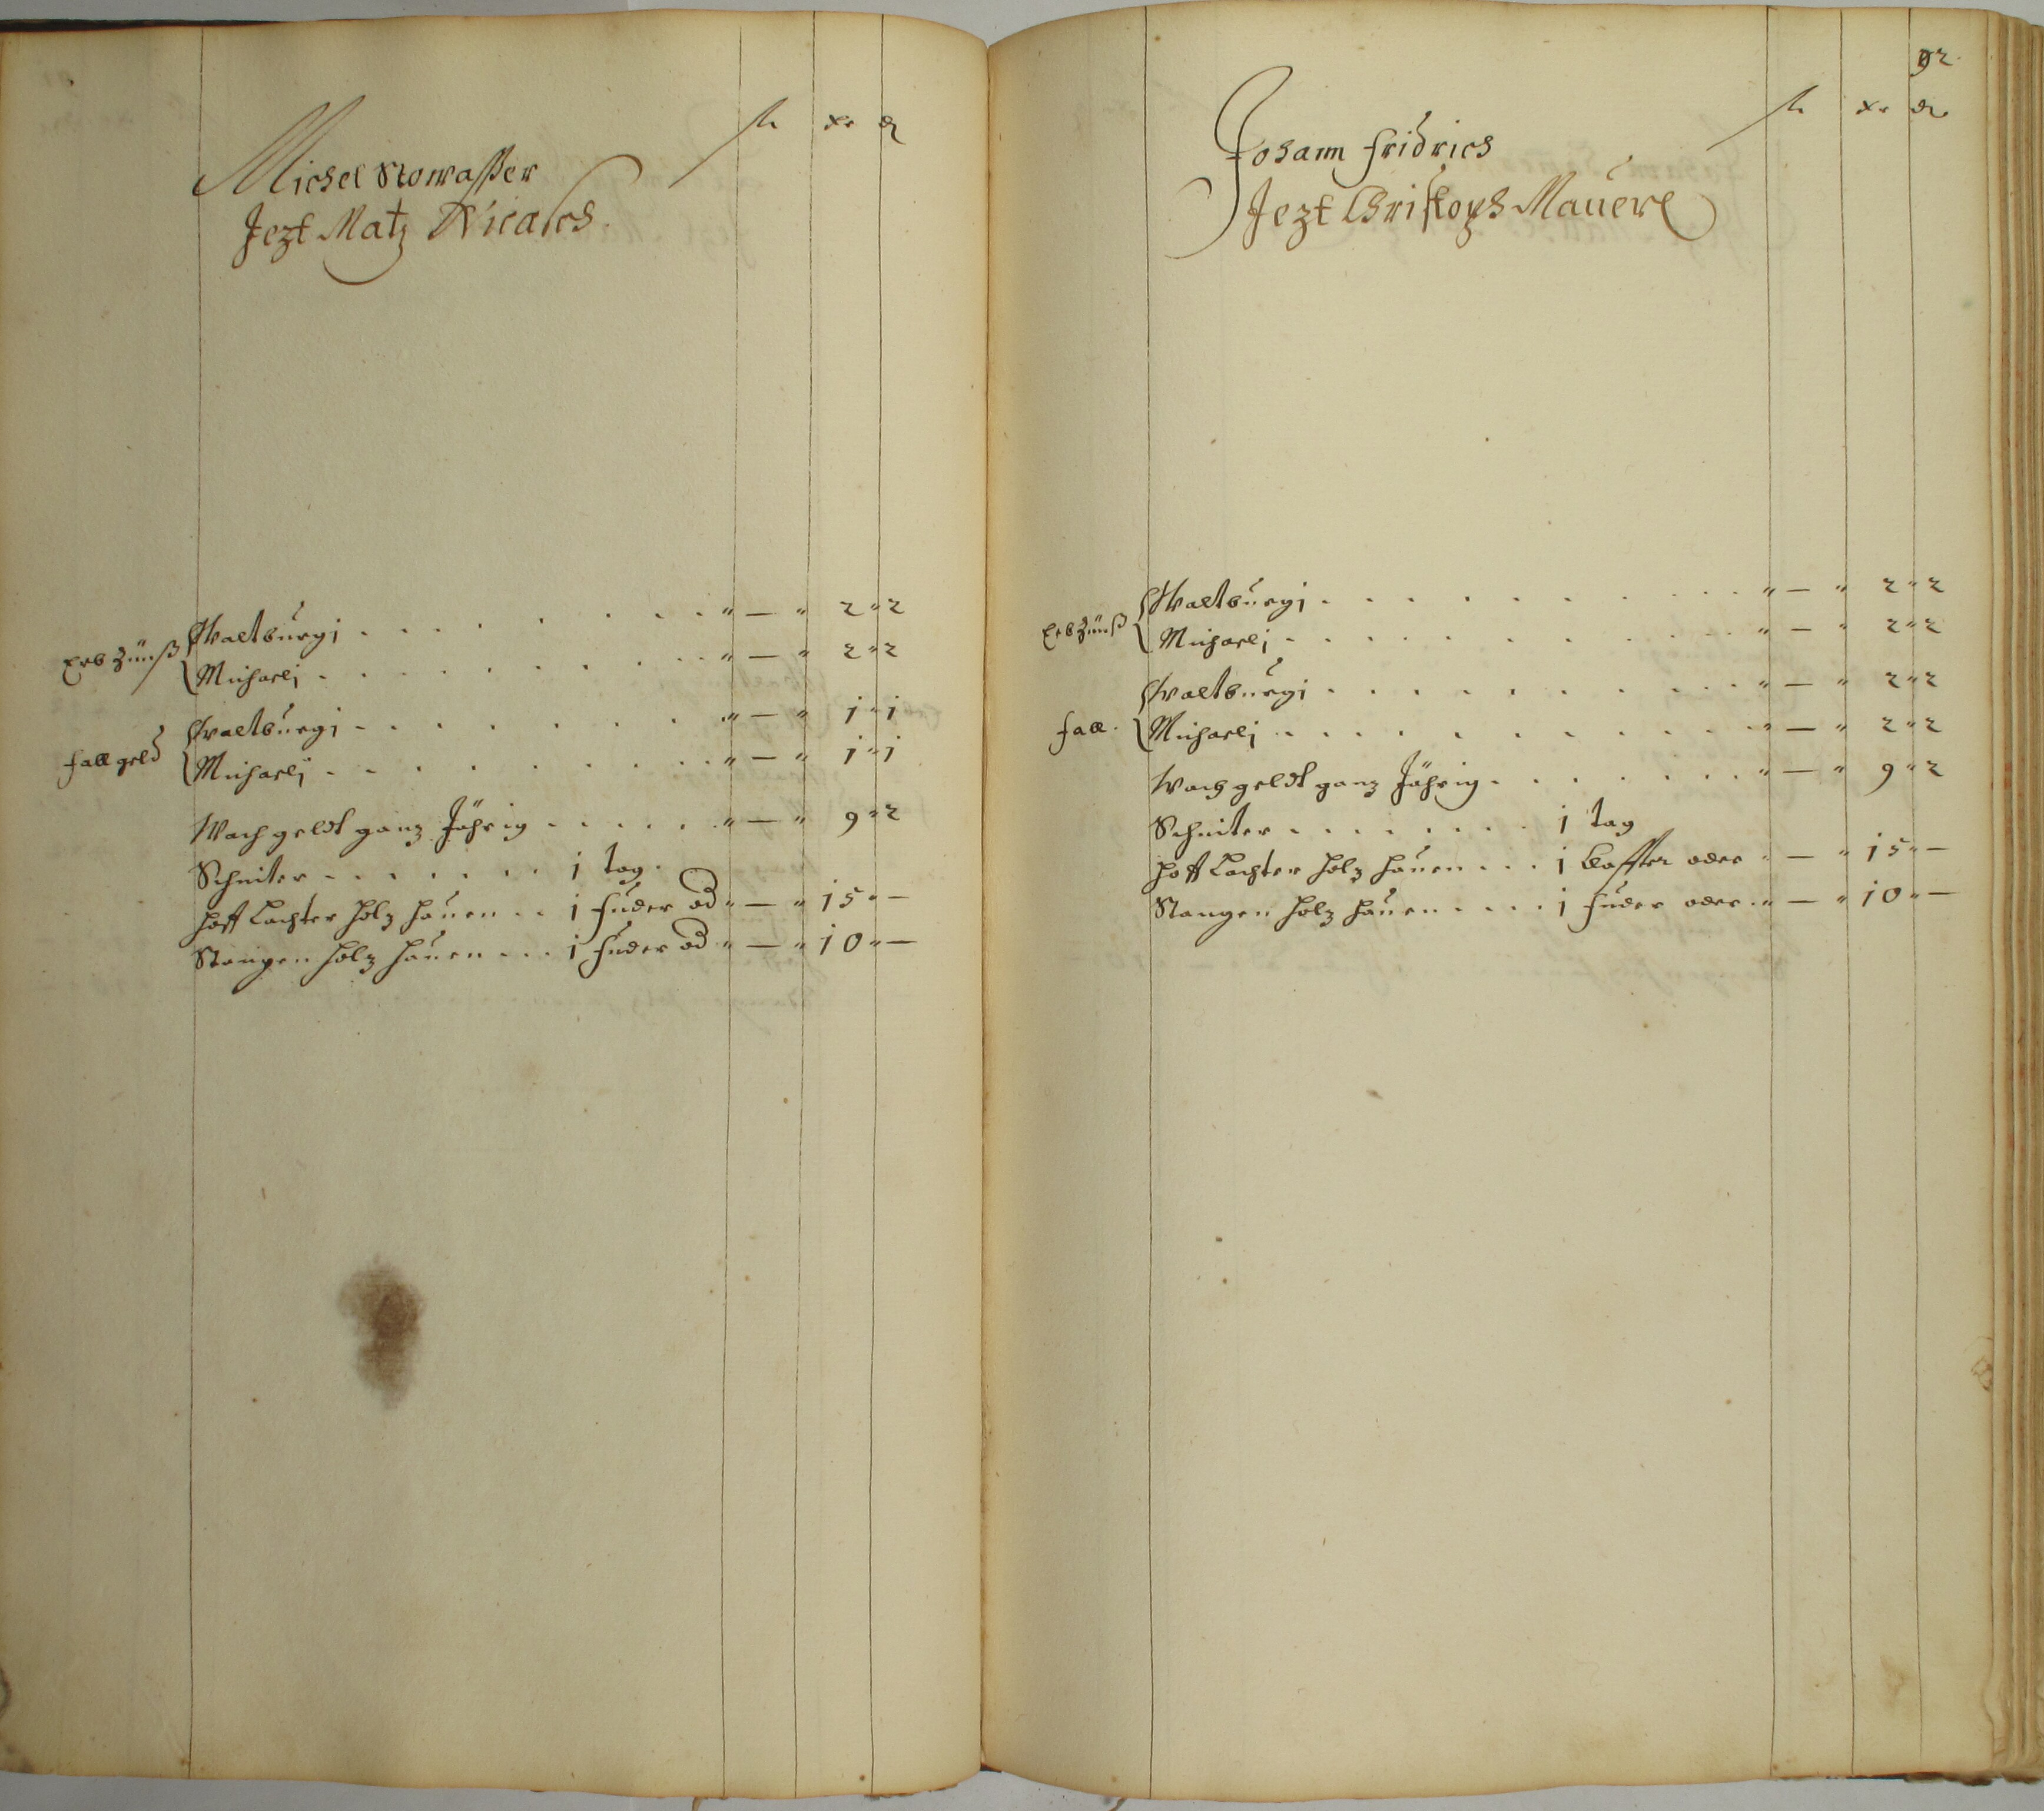 fl xr ₰
Michel Nowasser
Jezt Matz
Erb Zünß Waltburgj . . . . . . . . „ — „ 2 „ 2
Michaelj . . . . . . . . „ — „ 2 „ 2
fall geld Waltburgj . . . . . . . „ — „ 1 „ 1
Michaelj . . . . . . . . „ — „ 1 „ 1
Wach geldt ganz Jährig . . . . . . „ — „ 9 „ 2
Schniter . . . . . . . 1 tag .
Hoff Lachter Holz Hauen . . 1 fuder od „ — „ 15 „ —
Stangen Holz Hauen . . . 1 fuder od „ — „ 10 „ —
92
fl xr ₰
Johann fridrich
Jezt Christoph Mauerl
Erb Zünß Waltburgj . . . . . . . . . . „ — „ 2 „ 2
Michaelj . . . . . . . . . . „ — „ 2 „ 2
fall . Waltburgj . . . . . . . . . . „ — „ 2 „ 2
Michaelj . . . . . . . . . . „ — „ 2 „ 2
Wach geldt ganz Jährig . . . . . . . „ — „ 9 „ 2
Schniter . . . . . . . 1 tag
Hoff Lachter Holz Hauen . . . 1 Claffter oder „ — „ 15 „ —
Stangen Holz Hauen . . . . 1 fuder oder . „ — „ 10 „ —